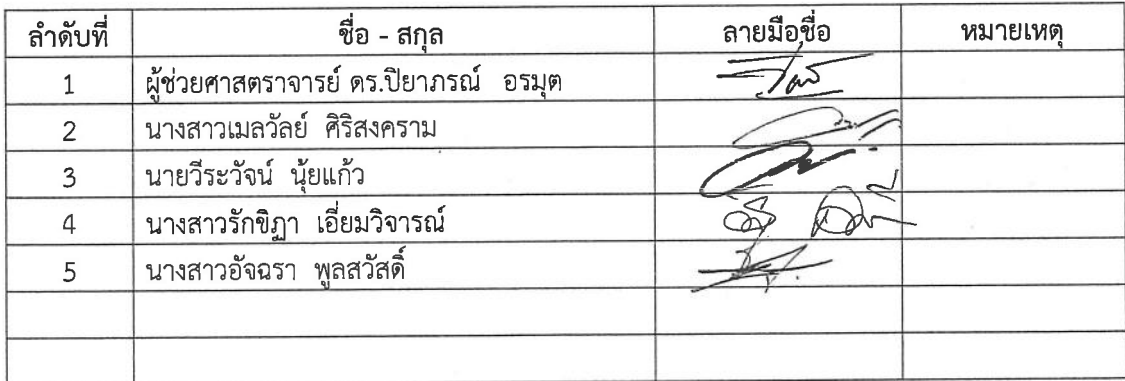 ลำดับที่ ชื่อ - สกุล ลายมือชื่อ หมายเหตุ
1 ผู้ช่วยศาสตราจารย์ ดร.ปิยาภรณ์ อรมุต
2 นางสาวเมลวัลย์ ศิริสงคราม
3 นายวีระวัจน์ นุ้ยแก้ว
4 นางสาวรักขิฏา เอี่ยมวิจารณ์
5 นางสาวอัจฉรา พูลสวัสดิ์